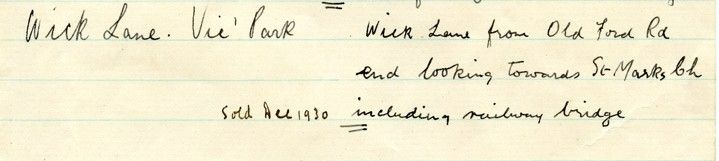 Wick Lane. Vic' Park
Wick Lane from Old Ford Rd
end looking towards St Marks Ch
Sold Dec 1930 including railway bridge